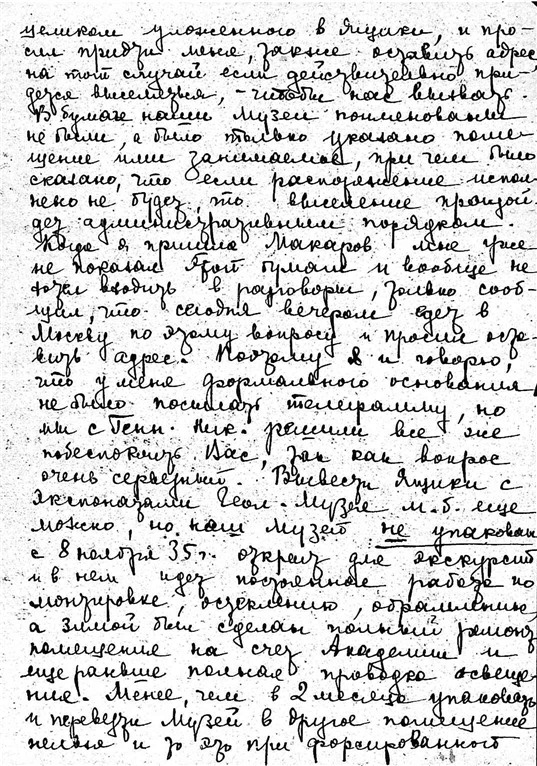 целиком уложенного в ящики, и про-
сил придти меня, также оставить адрес
на тот случай если действительно при-
дется выселяться, - чтобы нас вызвать.
В бумаге наши Музеи поименованы
не были, а было только указано поме-
щение ими занимаемое, при чем было
сказано, что если распоряжение испол-
нено не будет, то выселение произой-
дет административным порядком.
Когда я пришла Макаров мне уже
не показал этой бумаги и вообще не
хотел входить в разговоры, только сооб-
щил, что сегодня вечером едет в
Москву по этому вопросу и просил оста-
вить адрес. Поэтому я и говорю,
что у меня формального основания
не было посылать телеграмму, но
мы с Генн. Ник. решили все же
побеспокоить Вас, так как вопрос
очень серьезный. Вывезти ящики с
экспонатами Геол. Музея м.б. еще
можно, но наш Музей не упакован
с 8 ноября 35 г. открыт для экскурсий
и в нем идет постоянная работа по
монтировке, остеклению, обрамлению,
а зимой был сделан полный ремонт
помещения на счет Академии и
еще раньше полная проводка освеще-
ния. Менее, чем в 2 месяца упаковать
и перевезти Музей в другое помещение
нельзя и то это при форсированной